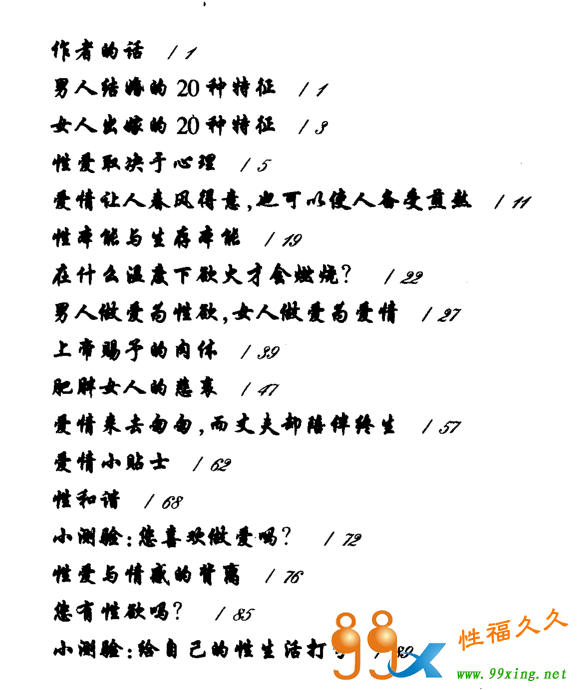 作者的话 / 1
男人结婚的20种特征 / 1
女人出嫁的20种特征 / 3
性爱取决于心理 / 5
爱情让人春风得意,也可以使人备受煎熬 / 11
性本能与生存本能 / 19
在什么温度下欲火才会燃烧? / 22
男人做爱为性欲,女人做爱为爱情 / 27
上帝赐予的肉体 / 39
肥胖女人的悲哀 / 47
爱情来去匆匆,而丈夫却陪伴终生 / 57
爱情小贴士 / 62
性和谐 / 68
小测验:您喜欢做爱吗? / 72
性爱与情感的背离 / 76
您有性欲吗? / 85
小测验:给自己的性生活打 / 89
99x 性福久久
www.99xing.net